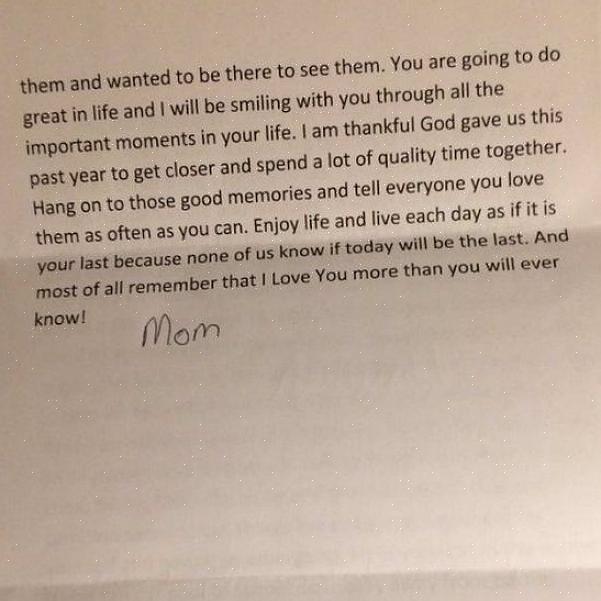 them and wanted to be there to see them. You are going to do
great in life and I will be smiling with you through all the
important moments in your life. I am thankful God gave us this
past year to get closer and spend a lot of quality time together.
Hang on to those good memories and tell everyone you love
them as often as you can. Enjoy life and live each day as if it is
your last because none of us know if today will be the last. And
most of all remember that I Love You more than you will ever
know!
Mom